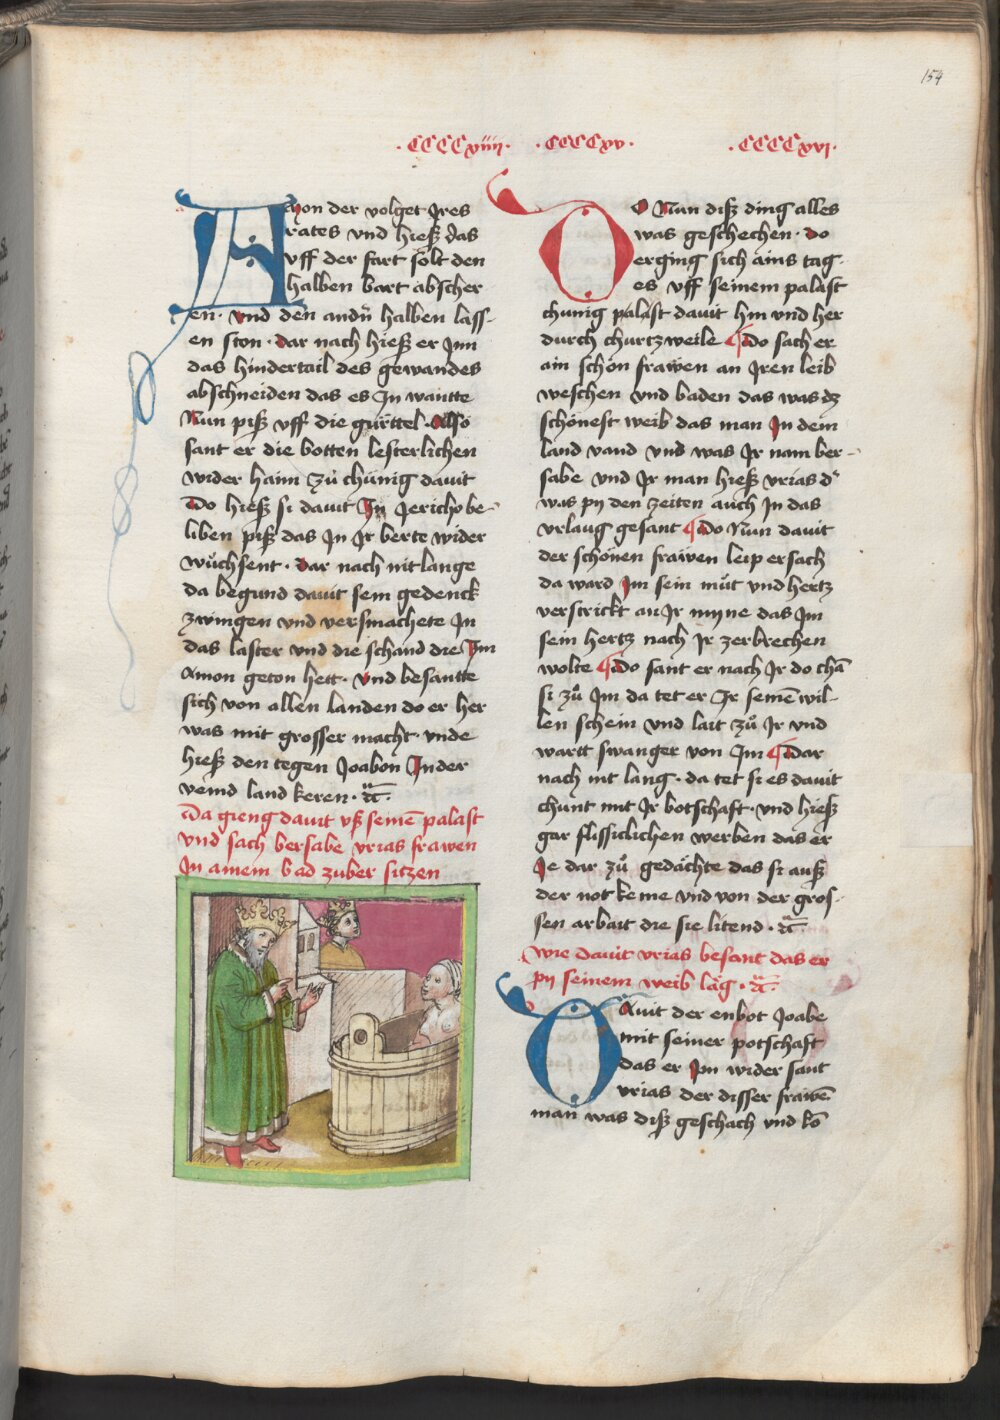 154
·CCCCxiiii· ·CCCCxv· ·CCCCxvi·
Amon der volget Jres
rates vnd hiesß das
vff der fart solt den
halben bart abscher
en· vnd den andn̄ halben lass-
en ston· dar nach hiesß er Jnn
das hindertail des gewandes
abschneiden das es Jn wantte
Nun pisß vff die gürttel· Also
sant er die botten lesterlichen
wider haim zů chünig dauit
Do hiesß si dauit Jn Jericho be-
liben pisß das Jn Jr berte wider
wůchsent· dar nach nit lange
da begund dauit sein gedenck
zwingen vnd versmachete Jn
das laster vnd die schand die Jm
Amon geton hett· Vnd besantte
sich von allen landen do er her
was mit grosser macht· vnde
hiesß den tegen Joabon Jn der
veind land keren·
Da gieng dauit vsß seinē palast
vnd sach bersabe vrias frawen
Jn ainem bad zuber sitzen
DO Nun disß ding alles
was geschechen· do
erging sich ains tag-
es vff seinem palast
chünig palast dauit hin vnd her
durch churtzweile Do sach er
ain schön frawen an Jren leib
weschen vnd baden das was dz
schönest weib das man Jn dem
land vand vnd was Jr nam ber-
sabe vnd Jr man hiesß vrias d'
was pÿ den zeiten auch Jn das
vrlaug gesant Do Nun dauit
der schönen frawen leip ersach
da ward Jm sein můt vnd hertz
verstrickt an Jr myne das Jm
sein hertz nach Jr zerbrechen
wolte Do sant er nach Jr do chā
si zů Jm da tet er Jr seinē wil-
len schein vnd lait zů Jr vnd
wartt swanger von Jm Dar
nach nit lang· da tet si es dauit
chunt mit Jr botschaft· vnd hiesß
gar flissiclichen werben das er
Je dar zů gedächte das si ausß
der not keme vnd von der gros-
sen arbait die sie litend·
wie dauit vrias besant das er
pÿ seinem weib läg·
DAuit der enbot Joabe
mit seiner potschaft
das er Jm wider sant
vrias der disser frawē
man was disß geschach vnd kō